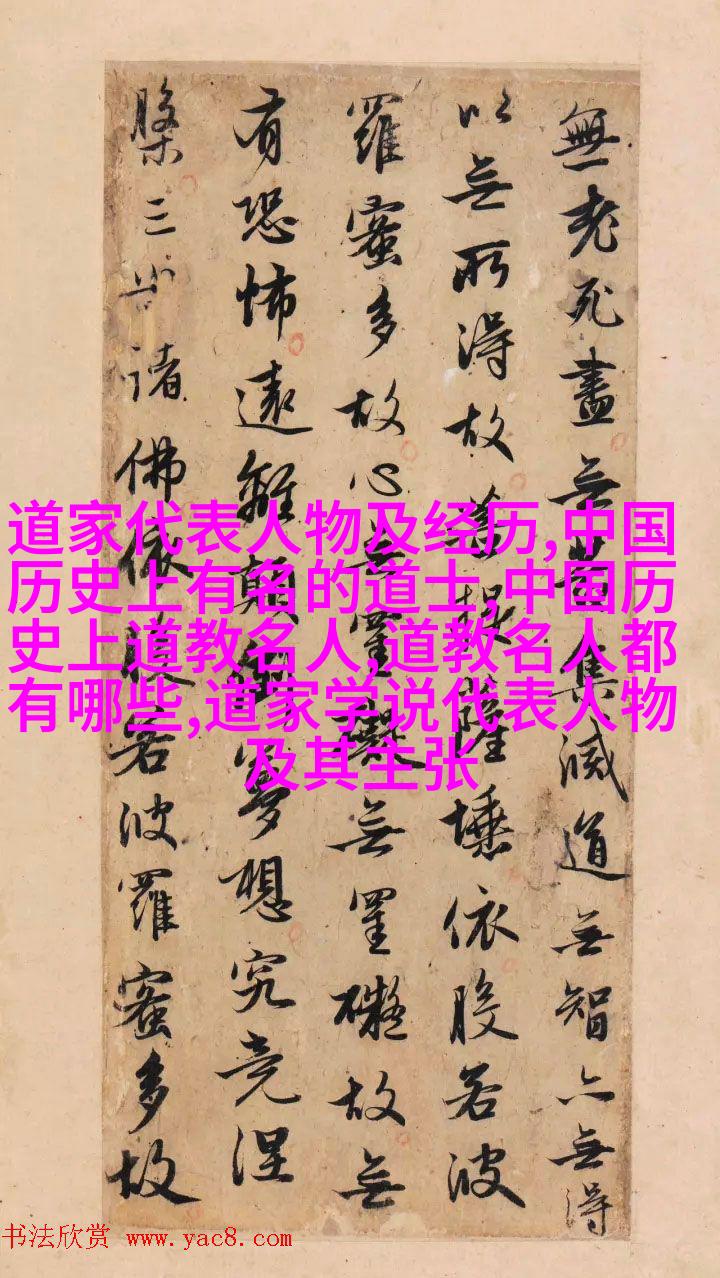 無老死盡无苦集滅道无智亦无得
以无所得故菩提薩埵依般若波
羅蜜多故心无罣礙无罣礙故无
有恐怖遠離顛倒夢想究竟涅
槃三世諸佛依般若波羅蜜多故
道家代表人物及经历,中国
历史上有名的道士,中国历
史上道教名人,道教名人都
有哪些,道家学说代表人物
及其主张
书法欣赏 www.yac8.com